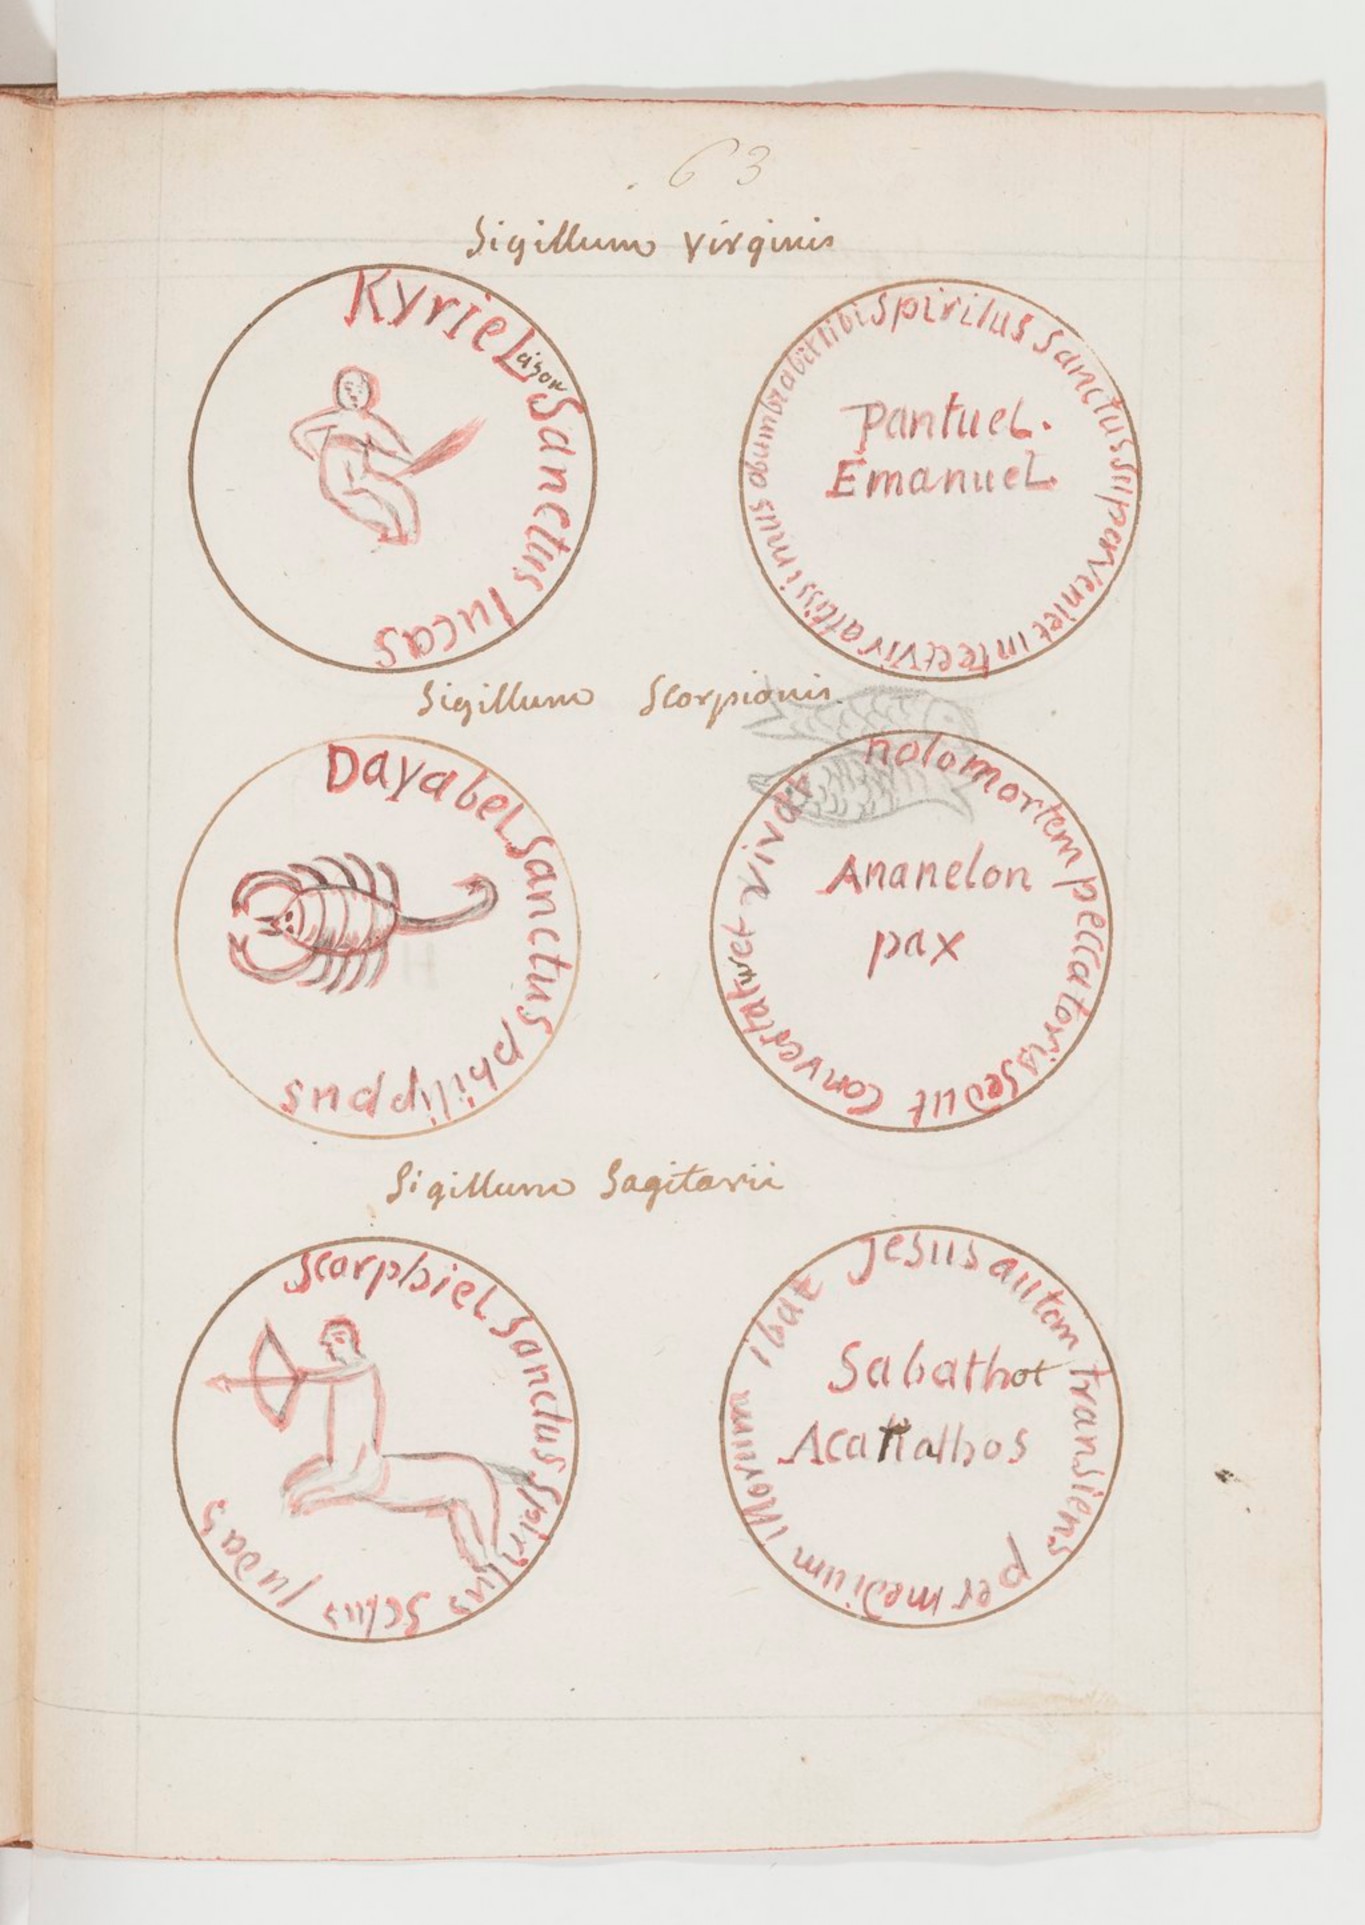 63
Sigillum virginis
KyrieL eison Sanctus lucas
Spiritus Sanctus superveniet in te et vir altissimus obumbrabit tibi
PantueL.
EmanueL
Sigillum Scorpionis
DayabeL Sanctus philippus
nolo mortem peccatoris sed ut convertatur et vivat
Ananelon
pax
Sigillum Sagitarii
ScorphieL Sanctus Spiritus Sctus judas
Jesus autem transiens per medium illorum ibat
Sabathot